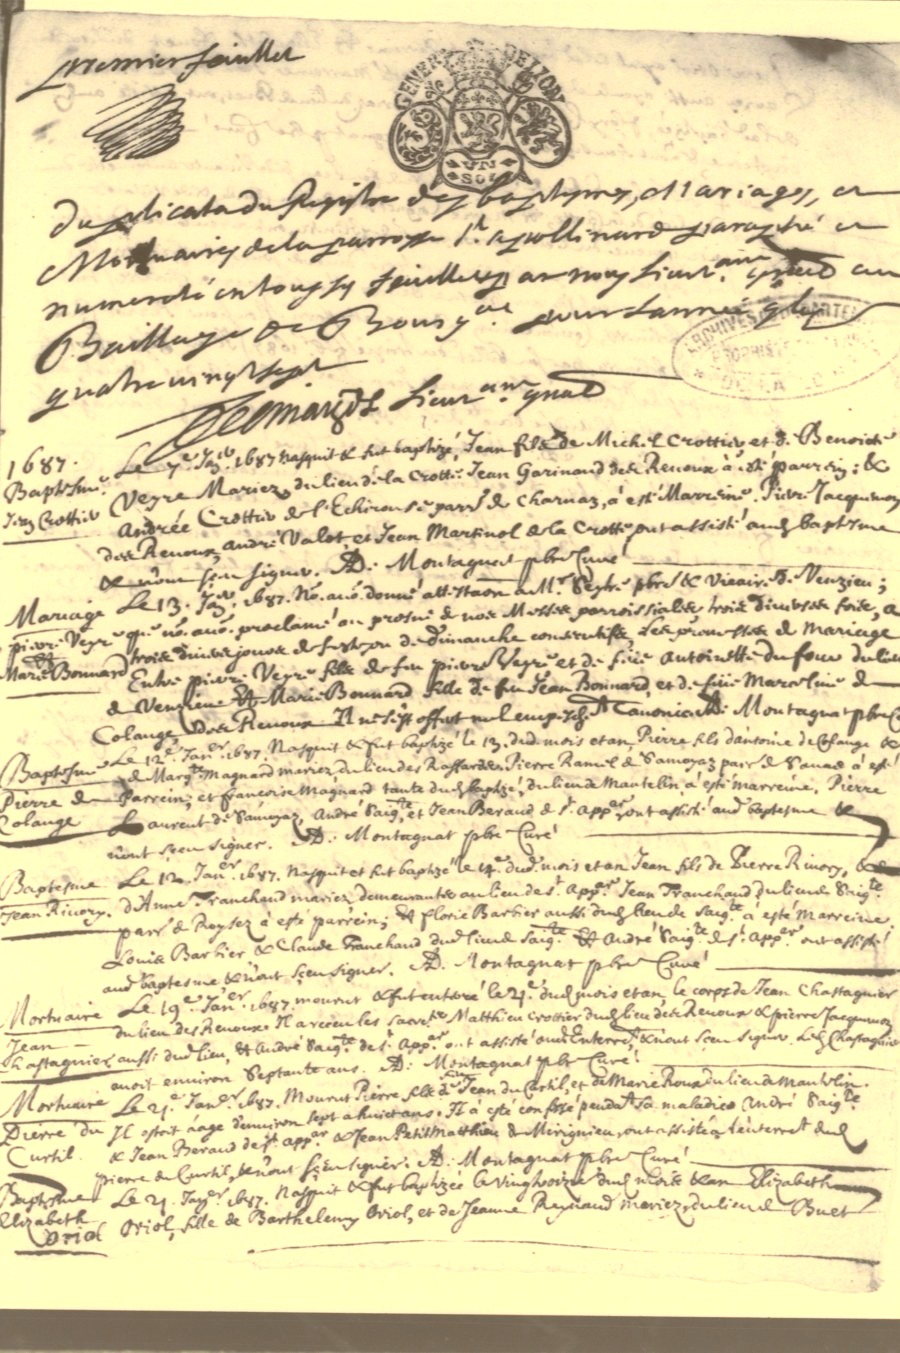 premier feuillet
GENERALITE DE LION
UN SOL
Duplicata du Registre des baptesmes, Mariages, et
Mortuaires de la parroisse St. Apollinard paraphé et
numeroté en tous ses feuillets par nous Lieut. gnal au
Bailliage de Bourg. pour l'année
quatre vingt sept
Lieut. gnal
ARCHIVES DEPARTEMENTALES DE LA LOIRE
1687. Le 7e Janr 1687 nasquit & fut baptizé, Jean fils de Michel Crottier et de Benoiste
Baptesme Veyre Mariez, du lieu de la Crotte Jean Garinaud des Renoux à esté parrein; &
Jean Crottier Andrée Crottier de l'Echirouse parr. de Charnas, à esté Marreine, Pierre Jacquemon
des Renoux, André Valot et Jean Martinol de la Crotte ont assisté aud. baptesme
& n'ont sçeu signer. A. D. Montagnat pbre Curé
Mariage Le 13. Janr 1687. No. avo. donné attestaon a Mr. pbre & Vicaire de Veuzieu;
pierre Veyre q. no. avo. proclamé au prosne de nos Messes parroissiales trois diverses fois, a
& trois divers jours de feste ou de dimanche consecutifs les promesses de Mariage
Marie Bonnard Entre pierre Veyre fils de feu pierre Veyre et de feüe Antoinette du four du lieu
de Veuzieu & Marie Bonnard fille de feu Jean Bonnard, et de feüe Marceline de
Colange des Renoux Il ne s'est offert nul empeschet Canonic. A. D. Montagnat pbre C
Baptesme Le 12e Janr 1687. Nasquit & fut baptizé le 13. dud. mois et an, Pierre fils d'antoine de Colange &
Pierre de de Margte Magnard mariez, du lieu des Raffardes Pierre Ramel de Samoyas parr de à esté
Colange Parrein; et francoise Magnard tante dud. baptizé, du lieu de Mantelin, à esté marreine, Pierre
Laurent de Samoyas, André Saigte, et Jean Beraud de St. Appar, ont assisté aud. baptesme &
n'ont sçeu signer. A. D. Montagnat pbre Curé
Baptesme Le 12. Janr 1687. Nasquit et fut baptizé le 14e dud. mois et an Jean, fils de Pierre Rivory, &
Jean Rivory. d'Anne Franchaud mariez, demeurants au lieu de St. Appar Jean Franchaud du lieu de Saigte
parr de Roysez à esté parrein; & florie Barbier aussi dud. lieu de Saigte à esté Marreine,
Louis Barbier, & Claude Franchaud dud. lieu de Saigte & André Saigte de St. Appar ont assisté
aud. baptesme & n'ont sçeu signer. A. D. Montagnat pbre Curé
Mortuaire Le 19e Janr 1687. mourut & fut enterré le 21e dud. mois et an, le corps de Jean Chastagnier
Jean du lieu des Renoux Il a receu les sacrts Matthieu Crottier dud. lieu des Renoux & pierre Jacquemon
Chastagnier aussi dud. lieu, & André Saigte de St. Appar ont assisté aud. Enterret & n'ont sçeu signer. Led. Chastagnier
avoit environ septante ans. A. D. Montagnat pbre Curé
Mortuaire Le 21e Janr 1687. Mourut Pierre fils de Jean du Curtil, et de Marie Roux du lieu de Mantelin.
Pierre du Il estoit aage d'environ sept a huict ans. Il à esté confessé pendat sa maladie André Saigte
Curtil. & Jean Beraud de St. Appar & Jean Petit Matthieu de Mirignieu, ont assisté a l'enterret dud.
pierre du Curtil, & n'ont sçeu signer. A. D. Montagnat pbre Curé
Baptesme Le 21. Janr 1687. Nasquit & fut baptizée le vingt dud. Mois & an Elizabeth
Elizabeth Oriol, fille de Barthelemy Oriol, et de Jeanne Reynaud mariez, du lieu de Buet
Oriol